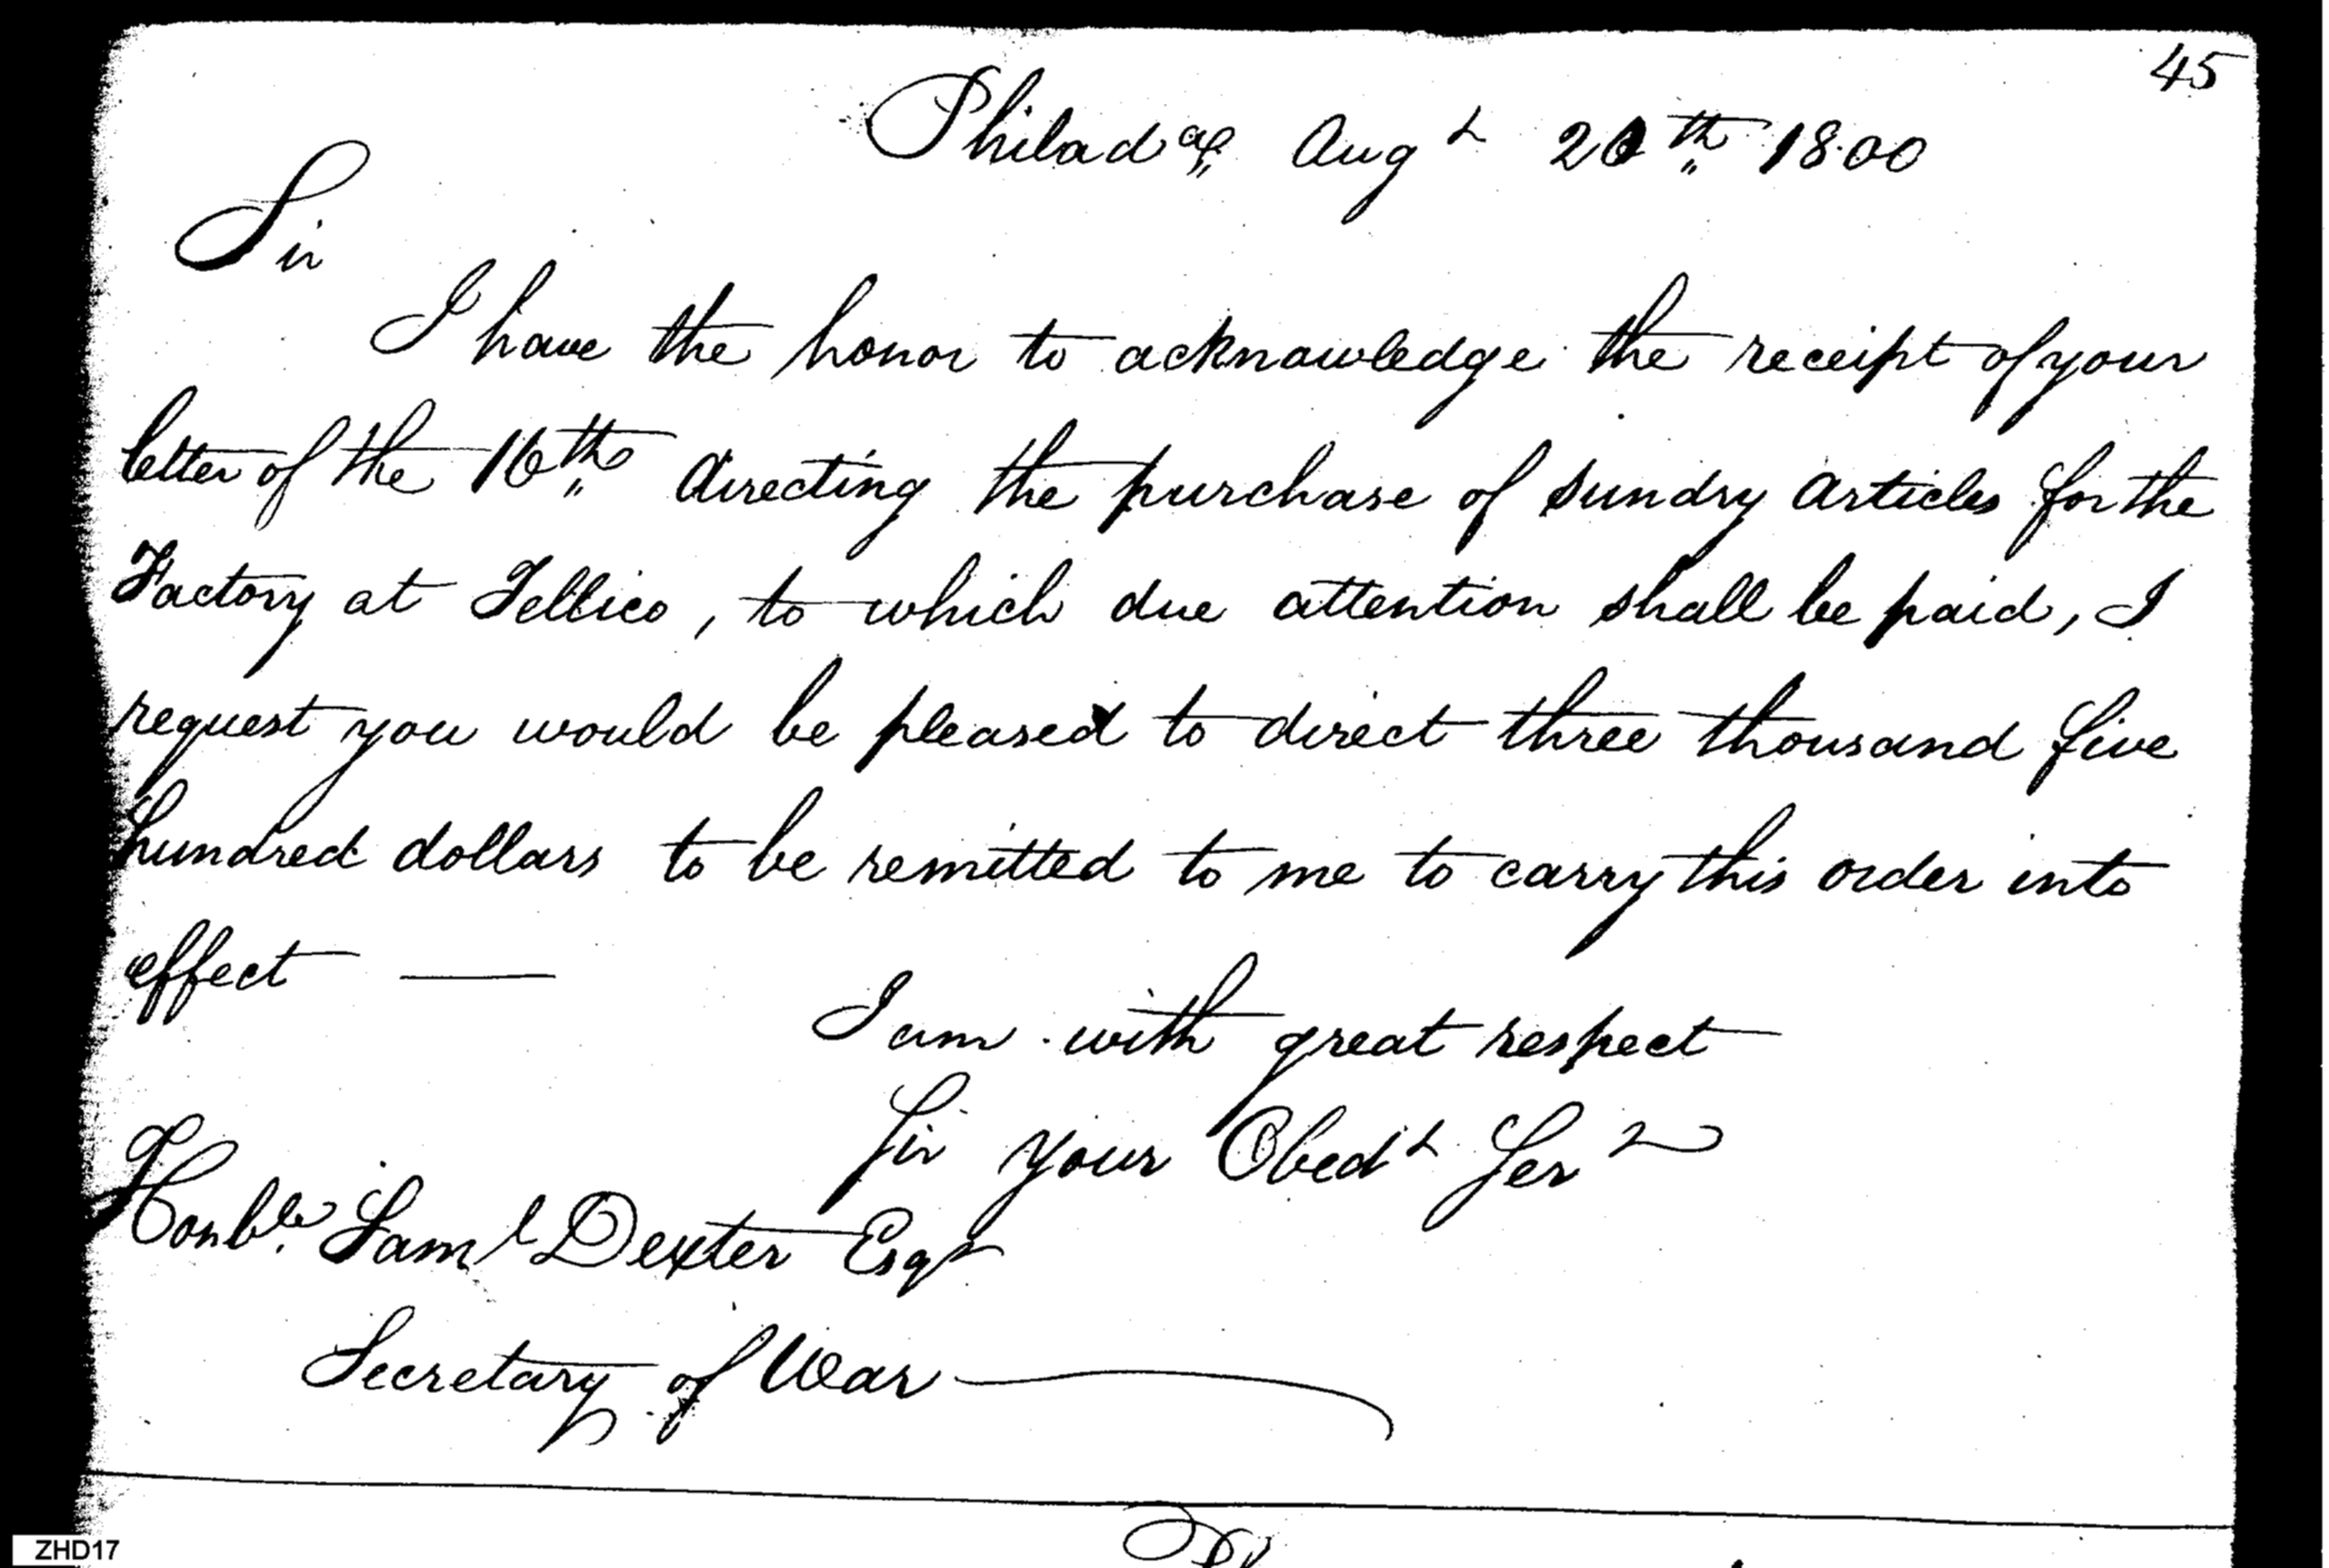 45
Philada Augt 20th 1800
Sir
I have the honor to acknowledge the receipt of your
letter of the 16th directing the purchase of sundry articles for the
Factory at Tellico, to which due attention shall be paid, I
request you would be pleased to direct three thousand five
hundred dollars to be remitted to me to carry this order into
effect —
I am with great respect
Sir your Obedt Ser
Honble Saml Dexter Esqr
Secretary of War
ZHD17